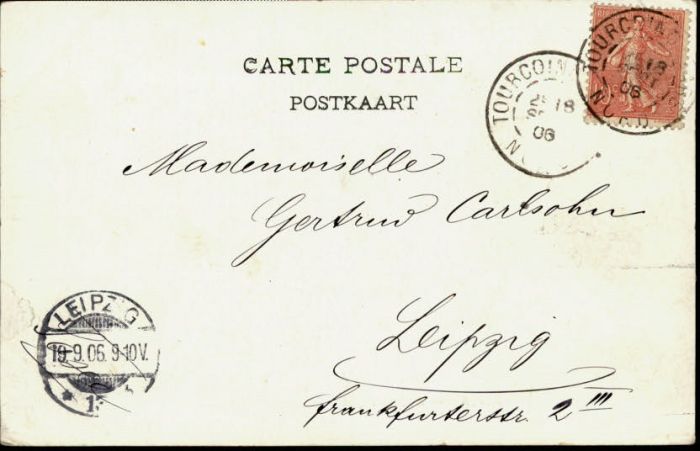 CARTE POSTALE
POSTKAART
TOURCOING
18
06
NORD
TOURCOIN
18
06
NORD
Mademoiselle
Gertrud Carlsohn
Leipzig
frankfurterstr. 2 III
LEIPZIG
19.9.06. 9-10V.